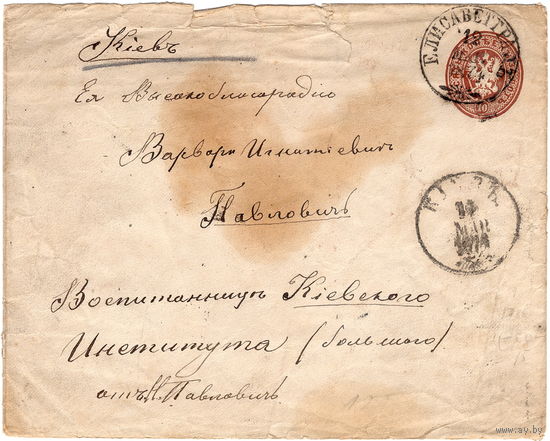 Кіевъ
Ея Высокоблагородію
Варварѣ Игнатіевнѣ
Павловичъ
Воспитанницѣ Кіевскаго
Института (большого)
отъ Н. Павловичъ
ЕЛИСАВЕТГР
13
КІЕВЪ
МАР
www.ay.by